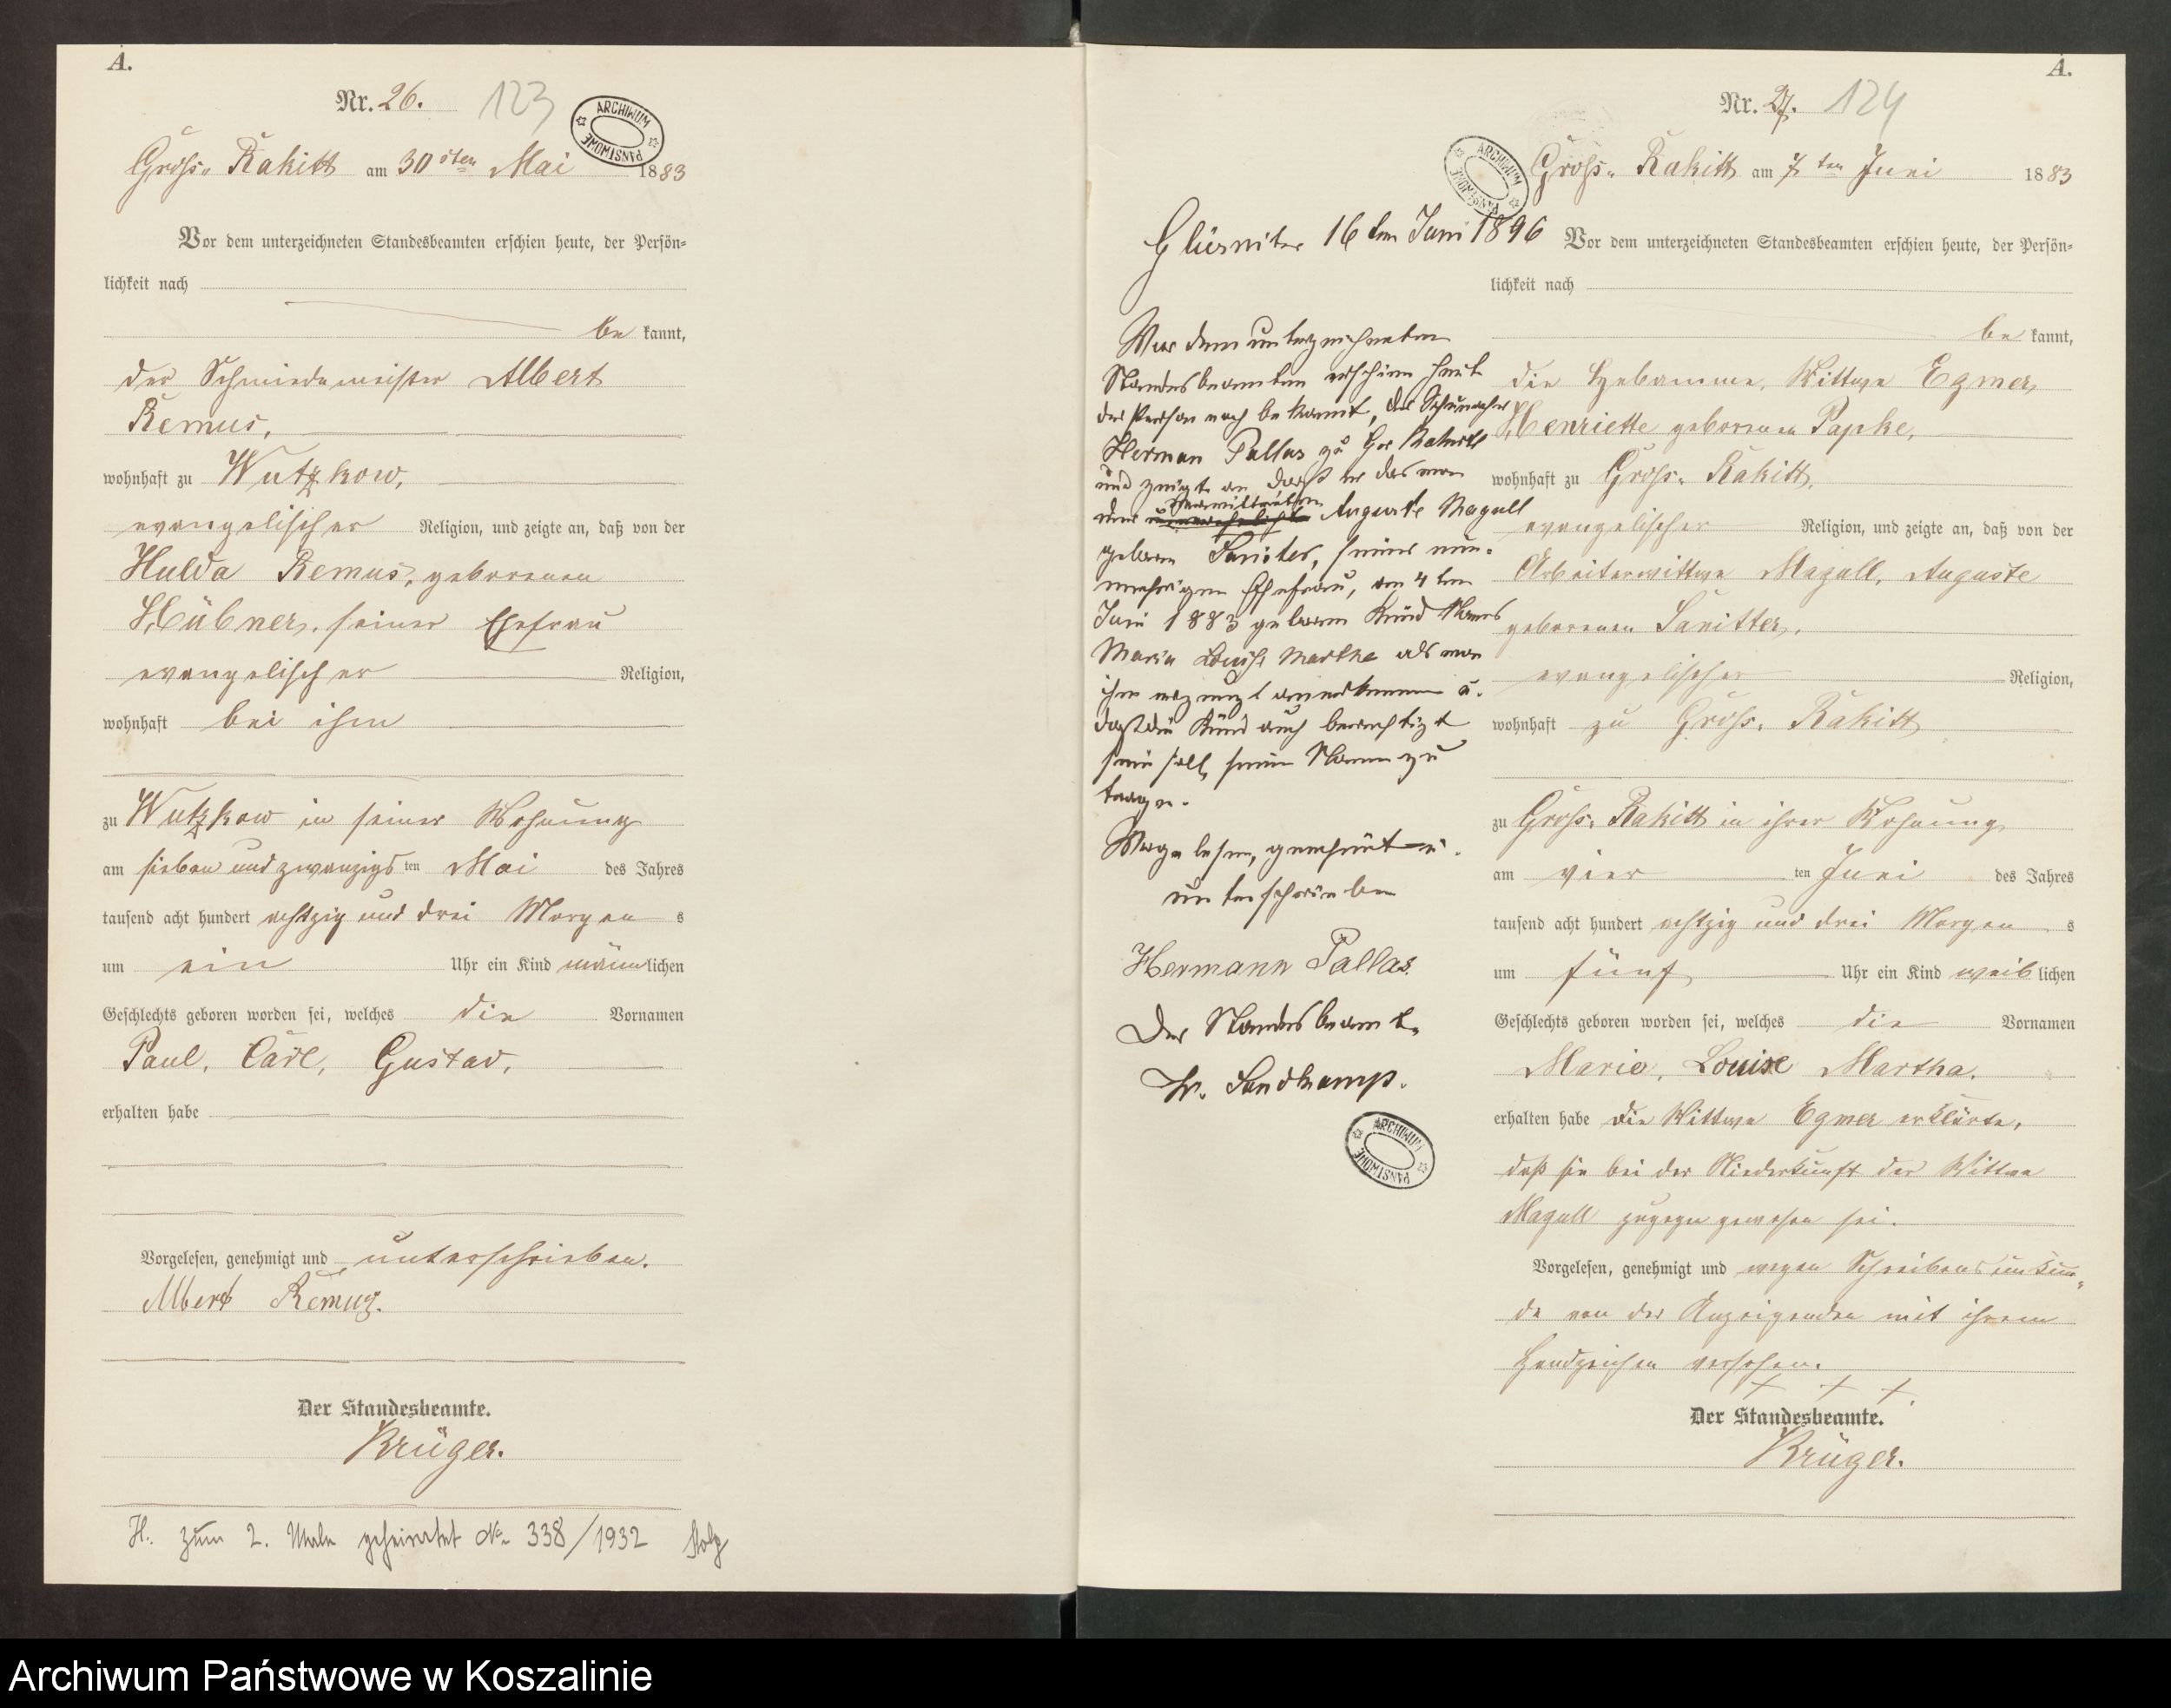 A.
Nr. 26. 123
ARCHIWUM PAŃSTWOWE
Gross. Rakitt am 30 sten Mai 1883
Vor dem unterzeichneten Standesbeamten erschien heute, der Persön=
lichkeit nach
be kannt,
der Schmiedemeister Albert
Remus,
wohnhaft zu Wutzkow,
evangelischer Religion, und zeigte an, daß von der
Hulda Remus, geborenen
Hübner, seiner Ehefrau
evangelischer Religion,
wohnhaft bei ihm
zu Wutzkow in seiner Wohnung
am sieben und zwanzigsten Mai des Jahres
tausend acht hundert achtzig und drei Morgens
um ein Uhr ein Kind männlichen
Geschlechts geboren worden sei, welches die Vornamen
Paul, Carl, Gustav,
erhalten habe
Vorgelesen, genehmigt und unterschrieben.
Albert Remus.
Der Standesbeamte.
Krüger.
H. zum 2. Male geheiratet No 338/1932
A.
Nr. 27. 124
ARCHIWUM PAŃSTWOWE
Gross. Rakitt am 7 ten Juni 1883
Vor dem unterzeichneten Standesbeamten erschien heute, der Persön=
lichkeit nach
be kannt,
die Hebamme, Wittwe Egmer,
Henriette geborenen Papke,
wohnhaft zu Gross. Rakitt,
evangelischer Religion, und zeigte an, daß von der
Arbeiterwittwe Magull, Auguste
geborenen Sanitter,
evangelischer Religion,
wohnhaft zu Gross. Rakitt
zu Gross. Rakitt in ihrer Wohnung
am vier ten Juni des Jahres
tausend acht hundert achtzig und drei Morgens
um fünf Uhr ein Kind weiblichen
Geschlechts geboren worden sei, welches die Vornamen
Marie, Louise Martha.
erhalten habe die Wittwe Egmer erklärte,
daß sie bei der Niederkunft der Wittwe
Magull zugegen gewesen sei.
Vorgelesen, genehmigt und wegen Schreibensunkun=
de von der Anzeigenden mit ihrem
Handzeichen versehen.
+ + +.
Der Standesbeamte.
Krüger.
16 ten Juni 1896
Vor dem unterzeichneten
Standesbeamten erschien heut
der Person nach bekannt, der
Herman Pallas zu Gr Rakitt
und zeigte an daß er das von
der Auguste Magull
geboren Sanitter, seiner nun=
mehrigen Ehefrau, am 4 ten
Juni 1883 geboren Kind Namens
Maria Louise Martha als von
ihm erzeugt anerkenne u.
daß die Kind auch berechtigt
sein soll, seinen Namen zu
tragen.
Vorgelesen, genehmigt u.
unterschrieben
Hermann Pallas.
Der Standesbeamte
W. Sandkamp.
ARCHIWUM PAŃSTWOWE
Archiwum Państwowe w Koszalinie